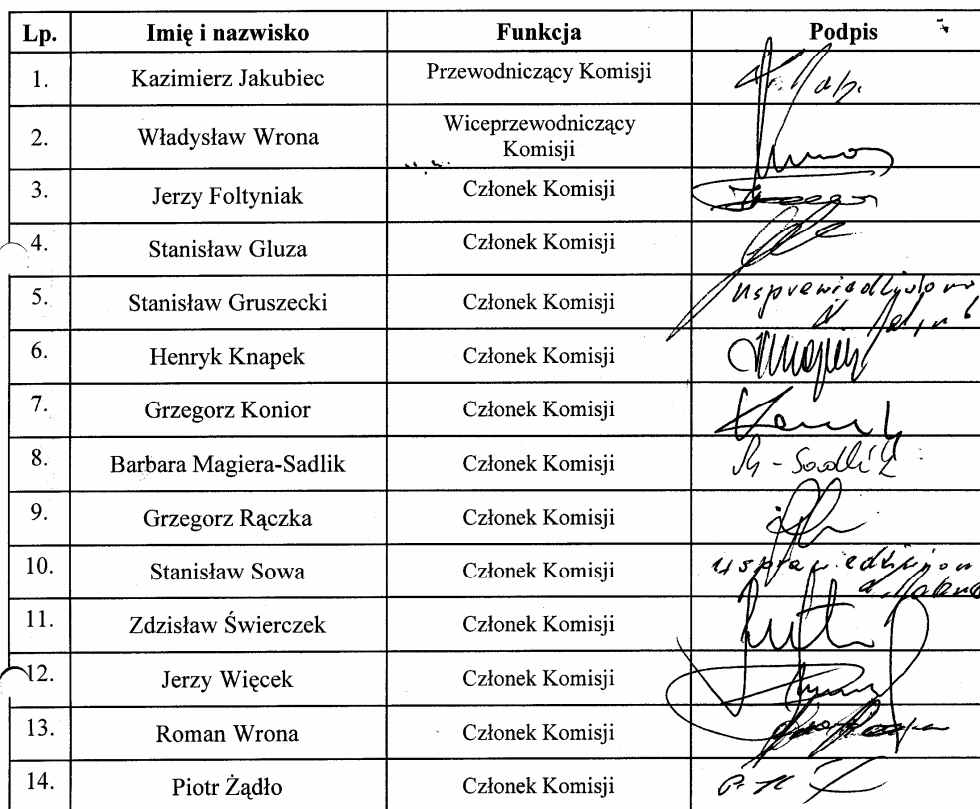 Lp. Imię i nazwisko Funkcja Podpis
1. Kazimierz Jakubiec Przewodniczący Komisji
2. Władysław Wrona Wiceprzewodniczący
Komisji
3. Jerzy Foltyniak Członek Komisji
4. Stanisław Gluza Członek Komisji
5. Stanisław Gruszecki Członek Komisji
6. Henryk Knapek Członek Komisji
7. Grzegorz Konior Członek Komisji
8. Barbara Magiera-Sadlik Członek Komisji M-Sadlik
9. Grzegorz Rączka Członek Komisji
10. Stanisław Sowa Członek Komisji
11. Zdzisław Świerczek Członek Komisji
12. Jerzy Więcek Członek Komisji
13. Roman Wrona Członek Komisji
14. Piotr Żądło Członek Komisji